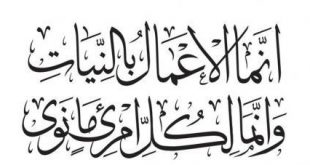 انَّمَا الْأَعْمَالُ بِالنِّيَاتِ
وَانَّمَا لِكُلِّ امْرِئٍ مَا نَوَى